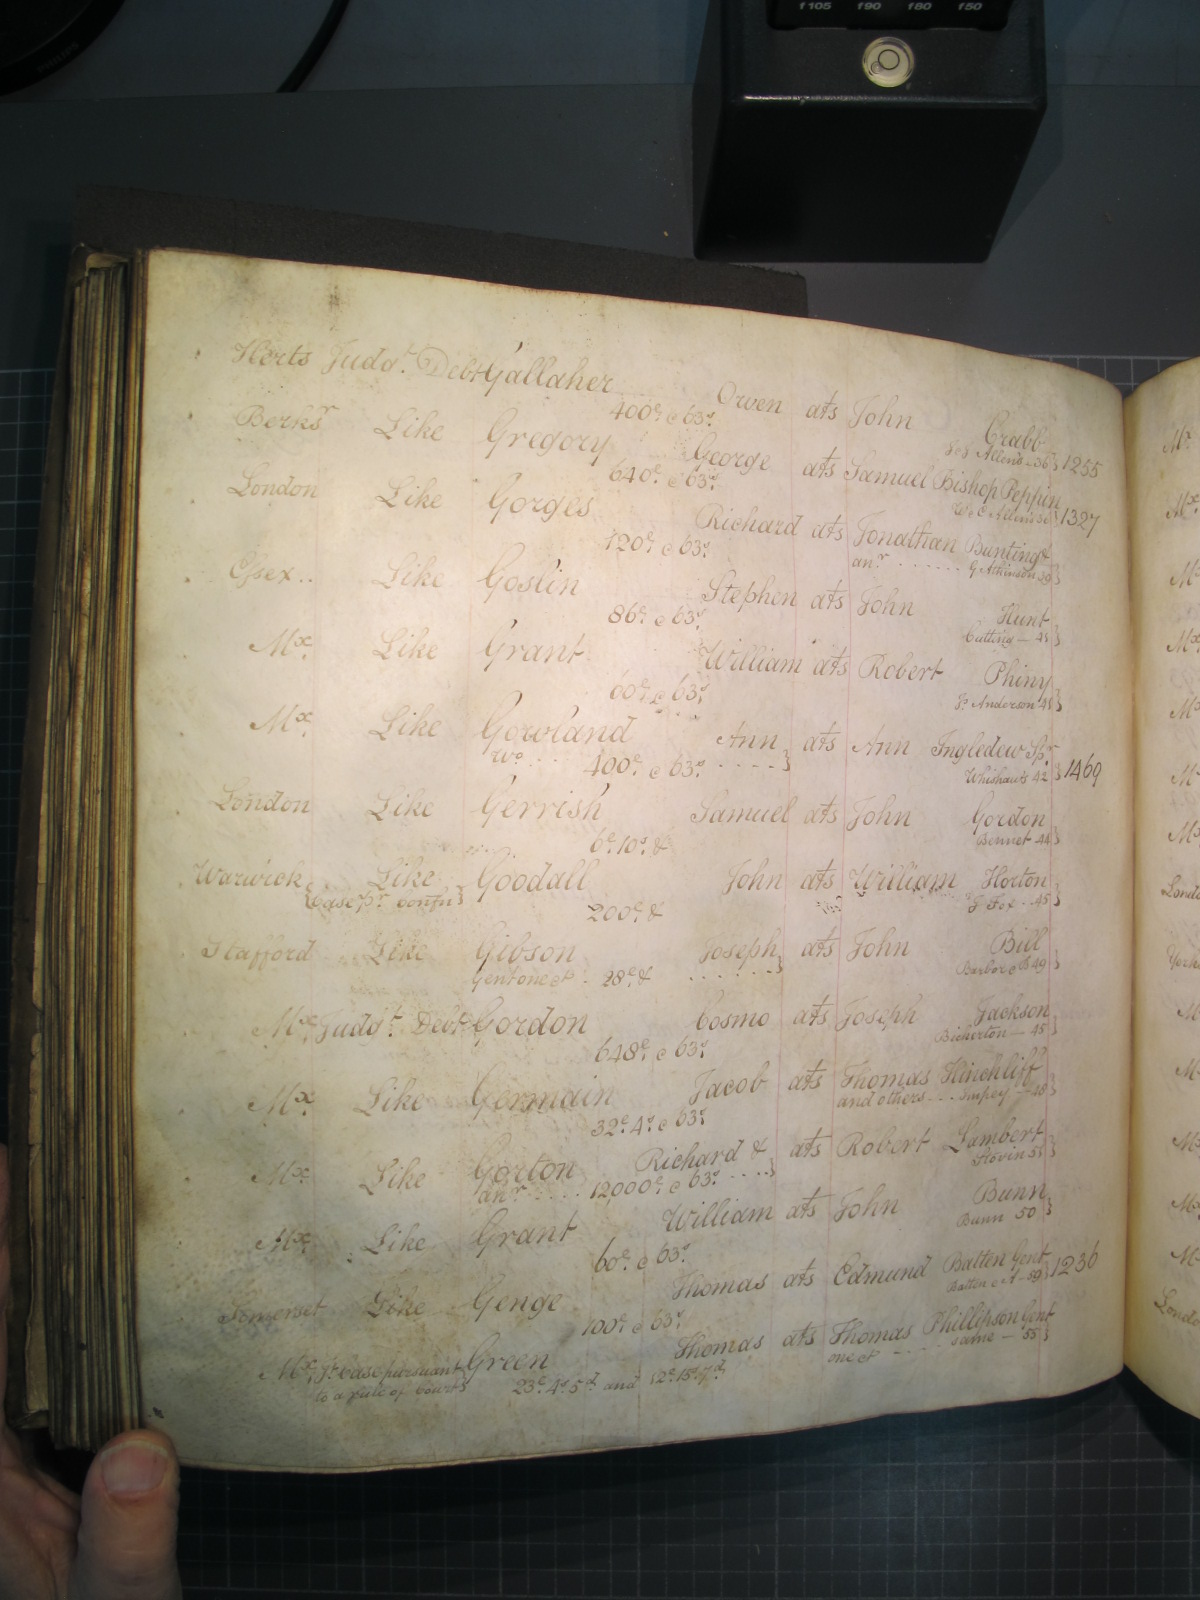 f105 f90 f80 f50
PHILIPS
Herts Judgt. Debt Gallaher Owen ats John Crabb
400£ e 63s. Jos Allens 36} 1255
Berks Like Gregory George ats Samuel Bishop Peppin
640£ e 63s. We C Allen 36} 1327
London Like Gorges Richard ats Jonathan Bunting &
120£ e 63s. anr. ...... G Atkinson 39}
Essex.. Like Goslin Stephen ats John Hunt
86£ e 63s. Cutting — 41}
Mx. Like Grant William ats Robert Phiny
60£ e 63s. Js Anderson 41}
Mx. Like Gowland Ann ats Ann Ingledew Spr.
Wo. .... 400£ e 63s. .....} Whishaws 42} 1469
London Like Gerrish Samuel ats John Gordon
6£ 10s. & Bennet 44}
Warwick Like Goodall John ats William Horton
{Case pr. confn} 200£ & J Fox .. 45}
Stafford Like Gibson Joseph ats John Bill
Gent one et . 28£ & .......} Barbor e B 49}
Mx. Judgt. Debt Gordon Cosmo ats Joseph Jackson
648£ e 63s. Bicknton — 45}
Mx. Like Germain Jacob ats Thomas Hinchliff
32£ 4s. e 63s. and others ... Impey — 48}
Mx. Like Gorton Richard & ats Robert Lambert
anr. ..... 12000£ e 63s. ....} Stovin 51}
Mx. Like Grant William ats John Bunn
60£ e 63s. Bunn 50}
Somerset Like Genge Thomas ats Edmund Batten Gent
100£ e 63s. Batten e A — 59} 1236
Mx. Jt. Case pursuant Green Thomas ats Thomas Phillipson Gent
to a rule of Court} 23£ 4s. 5d. and 12£ 15s. 7d. one et .... same — 55}
Mx.
Mx.
Mx.
Mx.
Mx.
Mx.
London